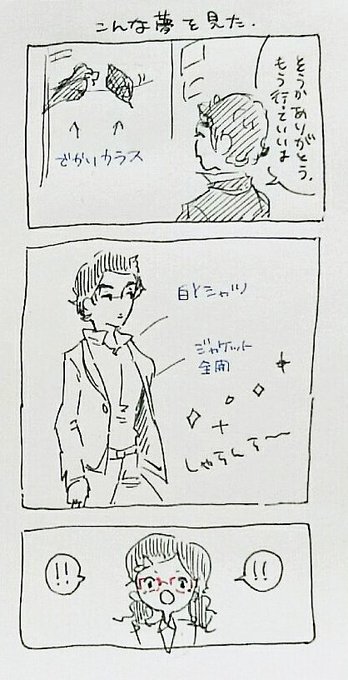 こんな夢を見た.
そうかありがとう.
もう行っていいよ
でかいカラス
白Yシャツ
ジャケット
全開
しゃらんら〜
!!
!!